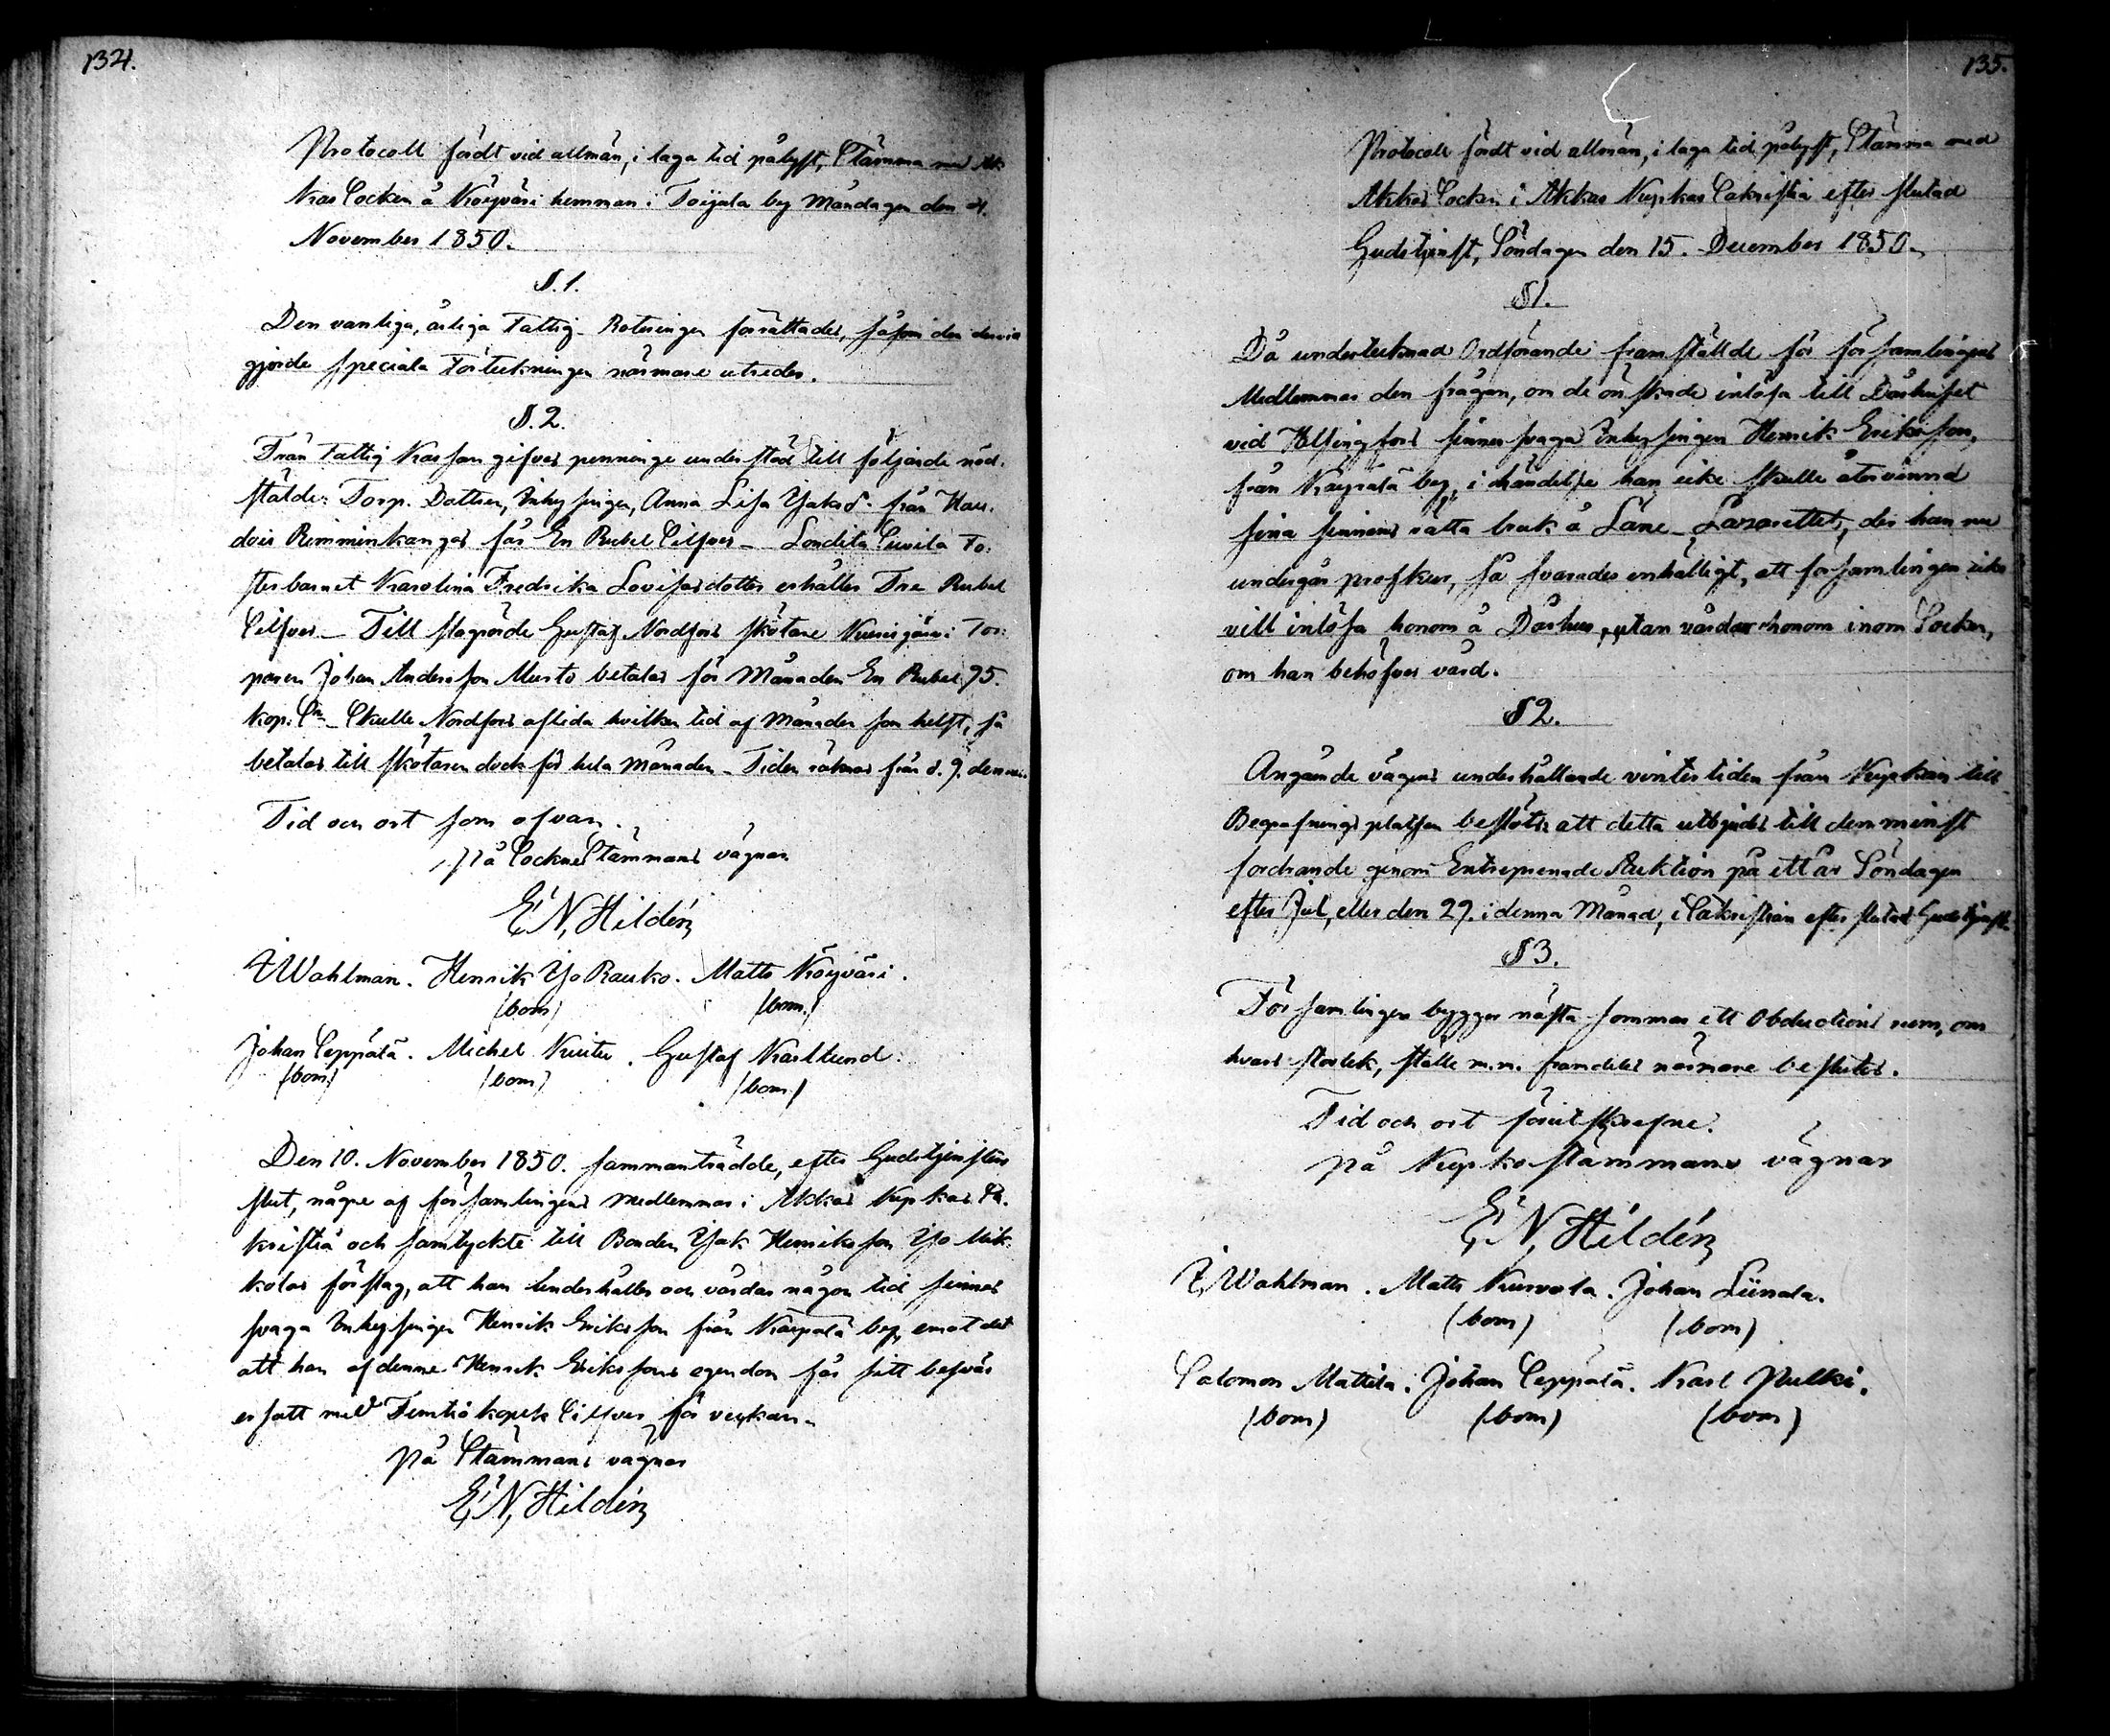 134.
Protocoll fördt vid allmän, i laga tid pålyst, Stämma med Ak-
kas Socken å Köyväri hemman i Toijala by Måndagen den 4.
November 1850.
§.1.
Den vanliga, årliga Fattig-Roteringen förrättades, såsom den
gjorde speciala Förteckningen närmare utreder.
§.2.
Från Fattig Kassan gifves penninge understöd till följande nöd-
stälde: Torp. Dottren, Inhysingen, Anna Lisa Jaksd. från
Rimminkangas får En Rubel Silfver _ Sondila Suvila To-
sterbarnet Karolina Fredrika Lovisasdotter erhåller Tre Rubel
Silfver _ Till slagrörde Gustaf Nordfors skötare Kurisjärvi Tor-
paren Johan Andersson Musto betalas för Månaden En Rubel 75.
kop. Sr. _ Skulle Nordfors aflida hvilken tid af Månaden som helst, så
betalas till skötaren dock för hela Månaden _ Tiden räknas från d. 9. dennes
Tid och ort som ofvan.
på SockneStämmans vägnar
E. N. Hildén
Wahlman. Henrik Yo Rauko. Matts Köyväri.
(bom) (bom)
Johan Seppälä. Michel Kuitu. Gustaf Karllund.
(bom) (bom) (bom)
Den 10. November 1850. sammanträdde, efter Gudstjenstens
slut, någre af församlingens medlemmar i Akkas Kyrkas Sa-
kristia och samtyckte till Bonden Jak Henriksson Yo Mik-
kolas förslag, att han underhåller och vårdar någon tid sinnes
svaga Inhysingen Henrik Eriksson från Kärpälä by, emot det
att han af denne Henrik Erikssons egendom får sitt besvär
ersatt med Femtio kopek Silfver för veckan.
på Stämmans vägnar
E. N. Hildén
135.
Protocoll fördt vid allmän, i laga tid pålyst, Stämma med
Akkas Socken i Akkas Kyrkas Sakristia efter slutad
Gudstjenst, Söndagen den 15. December 1850.
§1.
Då undertecknad Ordförande framställde för församlingens
Medlemmar den frågan, om de önskade inlösa till Dårhuset
vid Helsingfors sinnes svaga Inhysingen Henrik Eriksson,
från Kärpälä by, i händelse han icke skulle återvinna
sina sinnens rätta bruk å Läne-Lazarettet, der han nu
undergår profkur, så svarades enhälligt, att församlingen icke
vill inlösa honom å Dårhus, utan vårdar honom inom Socken,
om han behöfver vård.
§2.
Angående vägens underhållande vintertiden från Kyrkan till
Begrafningsplatsen beslöts att detta utbjudes till den minst
fordrande genom Entreprenade Auktion på ett år Söndagen
efter Jul, eller den 29. i denna Månad, i Sakristian efter slutad Gudstjenst.
§3.
Församlingen bygger nästa sommar ett Obductions rum, om
hvars storlek, ställe m.m. framdeles närmare beslutes.
Tid och ort förutskrefne.
på Kyrkostämmans vägnar
E. N. Hildén
Wahlman. Matts Kurvola. Johan Liunala.
(bom) (bom)
Salomon Mattila. Johan Seppälä. Karl Pulki.
(bom) (bom) (bom)